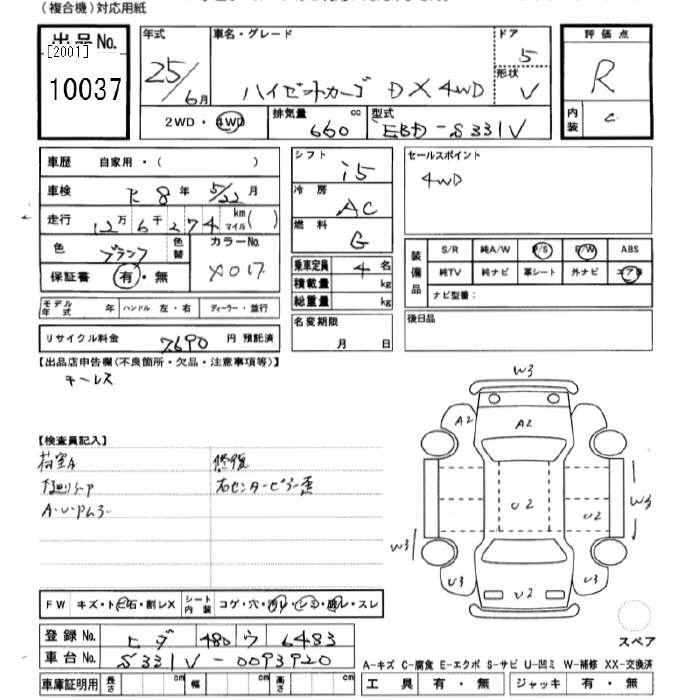 (複合機)対応用紙
出品No.
[2001]
10037
年式
25/6月
車名・グレード
ハイゼットカーゴ DX 4WD
ドア
5
形状
V
2WD・4WD
排気量
660 cc
型式
EBD-S331V
評価点
R
内装
C
車歴 自家用・( )
車検 R 8年 5/22月
走行 12万6千274 km マイル( )
色 ブラック 色替
カラーNo.
X017
保証書 有・無
シフト
i5
冷房
AC
燃料
G
セールスポイント
4WD
装備品
S/R 純A/W P/S P/W ABS
純TV 純ナビ 革シート 外ナビ エアB
ナビ型番:
乗車定員 4 名
積載量 kg
総重量 kg
モデル年式 年 ハンドル 左・右 ディーラー・並行
リサイクル料金 7690 円 預託済
名変期限
月 日
後日品
【出品店申告欄(不良箇所・欠品・注意事項等)】
キーレス
【検査員記入】
荷室A
修復
右センターピラー歪
A・U・Pムラ
W3
A2
A2
U2
U2
W3
W3
U3
U2
U3
スペア
FW キズ・トビ石・割レX
シート内装 コゲ・穴・汚レ・シミ・破レ・スレ
登録No. ヒダ 480 ウ 6483
車台No. S331V-0093920
車庫証明用 長さ cm 幅 cm 高さ cm
A-キズ C-腐食 E-エクボ S-サビ U-凹ミ W-補修 XX-交換済
工具 有・無 ジャッキ 有・無